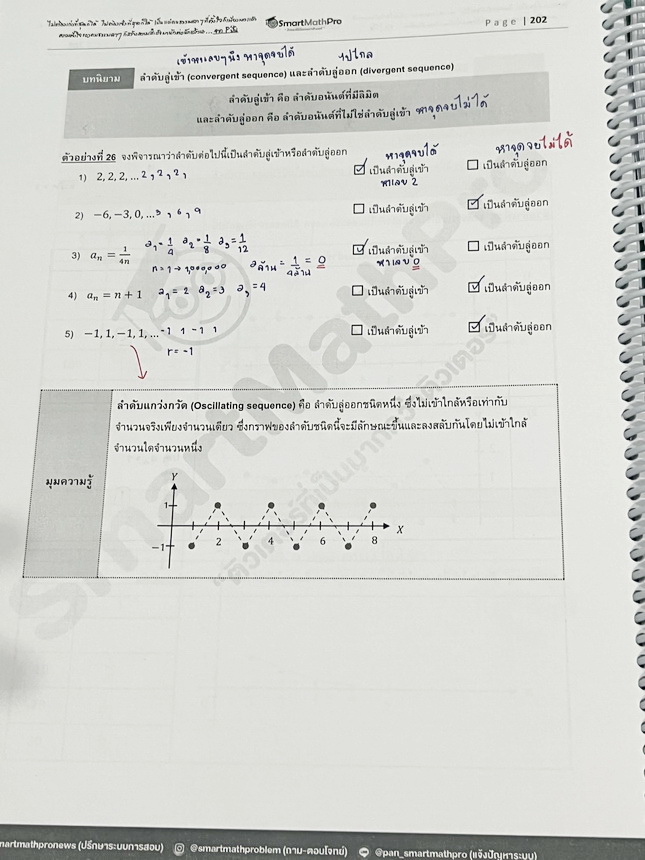 SmartMathPro
Page | 202
เข้าหาเลขๆนึง หาจุดจบได้ ไปไกล
บทนิยาม ลำดับลู่เข้า (convergent sequence) และลำดับลู่ออก (divergent sequence)
ลำดับลู่เข้า คือ ลำดับอนันต์ที่มีลิมิต
และลำดับลู่ออก คือ ลำดับอนันต์ที่ไม่ใช่ลำดับลู่เข้า หาจุดจบไม่ได้
ตัวอย่างที่ 26 จงพิจารณาว่าลำดับต่อไปนี้เป็นลำดับลู่เข้าหรือลำดับลู่ออก หาจุดจบได้ หาจุดจบไม่ได้
1) 2, 2, 2, ... 2, 2, 2, ☑ เป็นลำดับลู่เข้า ☐ เป็นลำดับลู่ออก
หาเลข 2
2) −6, −3, 0, ... 3, 6, 9 ☐ เป็นลำดับลู่เข้า ☑ เป็นลำดับลู่ออก
3) aₙ = 1/4n a₁ = 1/4 a₂ = 1/8 a₃ = 1/12 ☑ เป็นลำดับลู่เข้า ☐ เป็นลำดับลู่ออก
n = 1 → 1,000,000 aล้าน = 1/4ล้าน = 0 หาเลข 0
4) aₙ = n + 1 a₁ = 2 a₂ = 3 a₃ = 4 ☐ เป็นลำดับลู่เข้า ☑ เป็นลำดับลู่ออก
5) −1, 1, −1, 1, ... -1 1 -1 1 ☐ เป็นลำดับลู่เข้า ☑ เป็นลำดับลู่ออก
r = -1
ลำดับแกว่งกวัด (Oscillating sequence) คือ ลำดับลู่ออกชนิดหนึ่ง ซึ่งไม่เข้าใกล้หรือเท่ากับ
จำนวนจริงเพียงจำนวนเดียว ซึ่งกราฟของลำดับชนิดนี้จะมีลักษณะขึ้นและลงสลับกันโดยไม่เข้าใกล้
จำนวนใดจำนวนหนึ่ง
มุมความรู้
Y
1
X
2 4 6 8
−1
SmartMathPro
"ติวเตอร์ที่เป็นมากกว่าติวเตอร์"
martmathpronews (ปรึกษาระบบการสอบ) @smartmathproblem (ถาม-ตอบโจทย์) @pan_smartmathpro (แจ้งปัญหาระบบ)